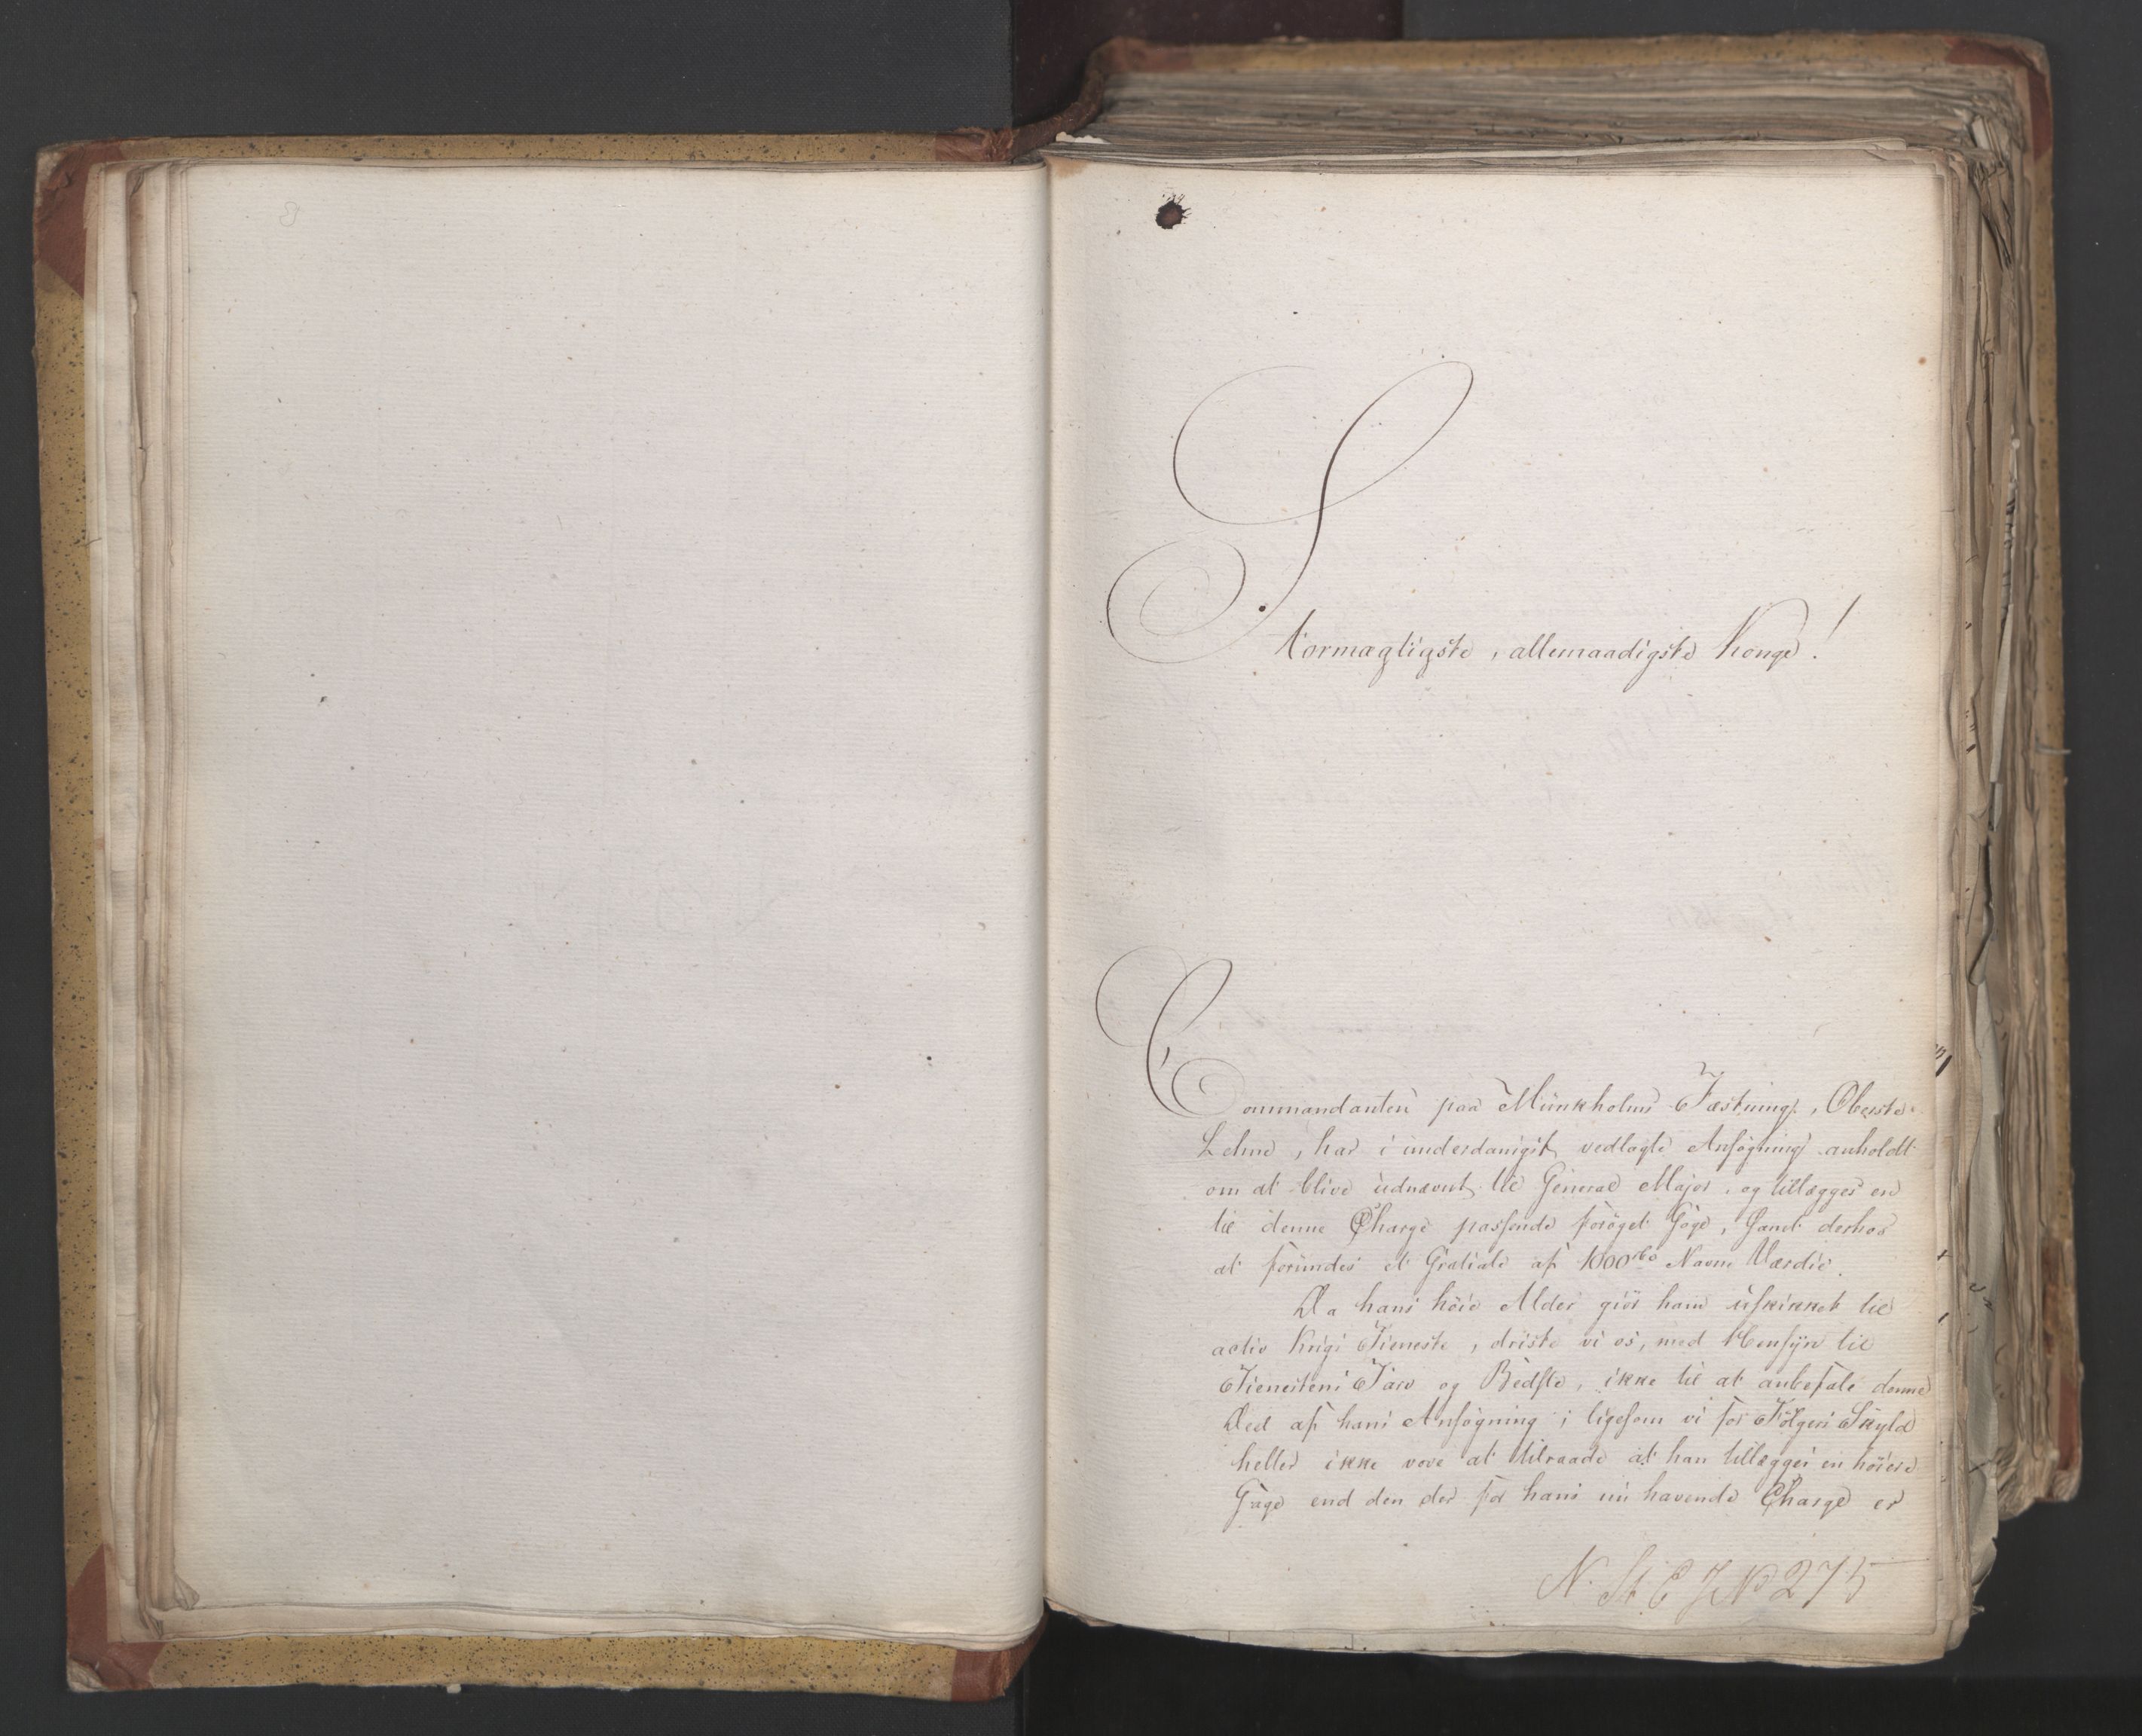 Stormægtigste, allernaadigste Konge!
Commandanten paa Munkholms Fæstning, Oberste
Lehne, har i underdanigst vedlagte Ansøgning anholdt
om at blive udnævnt til General Major, og tillægges en
til denne Charge passende forøget Gage, samt derhos
at forundes et Gratiale af 1000 rbd Navne Værdie.
Da hans høie Alder giør ham uskikket til
activ Krigs Tieneste, driste vi os, med Hensyn til
Tienestens Tarv og Bedste, ikke til at anbefale denne
Deel af hans Ansøgning; ligesom vi for Følgens Skyld
heller ikke vove at tilraade at han tillægges en høiere
Gage end den der for hans nu havende Charge er
N. St. E J No 275